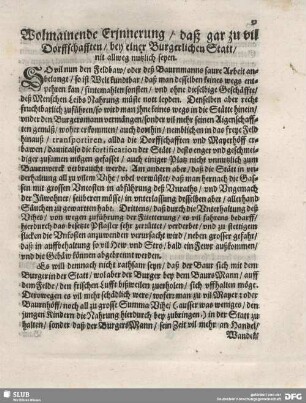 Wolmainende Erjnnerung / daß gar zu vil
Dorffschafften / bey einer Burgerlichen Statt /
nit allweg nutzlich seyen.
SO vil nun den Feldbaw / oder deß Baurnmanns saure Arbeit an-
belangt / so ist Welt kundtbar / daß man desselben keines wegs ent-
pehren kan / sintemahlen sonsten / und ohne dieselbige Geschäfft /
deß Menschen Leibs Nahrung müste noht leyden. Denselben aber recht
fruchtbarlich zuführen / so wird man Ihne keines wegs in die Stätte hinein /
vnder den Burgersmann vermängen / sonder vil mehr seinen Aigenschafften
gemäß / woher er kommen / auch dorthin / nemblichen in das freye Feld
hinauß / transportiren, allda die Dorffschafften vnd Mayerhöff er-
bawen / Damit die fortification der Stätte / desto enger vnd geschmei-
diger zusamen mögen gefasset / auch einiger Platz nicht vnnutzlich zum
Baurnwerck verbraucht werde. Am andern aber / daß die Stätt in vn-
derhaltung all zu vilem Vihe / obel verwüstet / daß man hernach die Gas-
sen mit grossen Vncosten in abführung deß Vnraths / vnd Vngemach
der Inwohner / seubern müste / in vnterlassung desselben aber / allerhand
Säuchen zu gewarten habe. Drittens / daß durch die Vnterhaltung deß
Vihes / von wegen zuführung der Fütterung /
so vil Hew vnd Stro / bald ein Fewr außkommen /
vnd die Gebäw können abgebrennt werden.
Es will demnach nicht rathsam seyn / daß der Baur sich mit dem
Burger in der Statt / wol aber der Burger bey dem Baurs Mann / auff
dem Felde / den frischen Lufft bißweilen zuerholen / sich vffhalten möge.
Derowegen es vil mehr schädlich were / wofern man zu vil Mayer : oder
Baurnhöff / noch all zu grosse Summa Vihe / (ausser was weniges / den
jungen Kindern die Nahrung hierdurch bey zubringen :) in der Statt zu
halten / sonder daß der Burgers Mann / sein Zeit vil mehr an Handel /
Wandel /
SLUB
Wir führen Wissen.